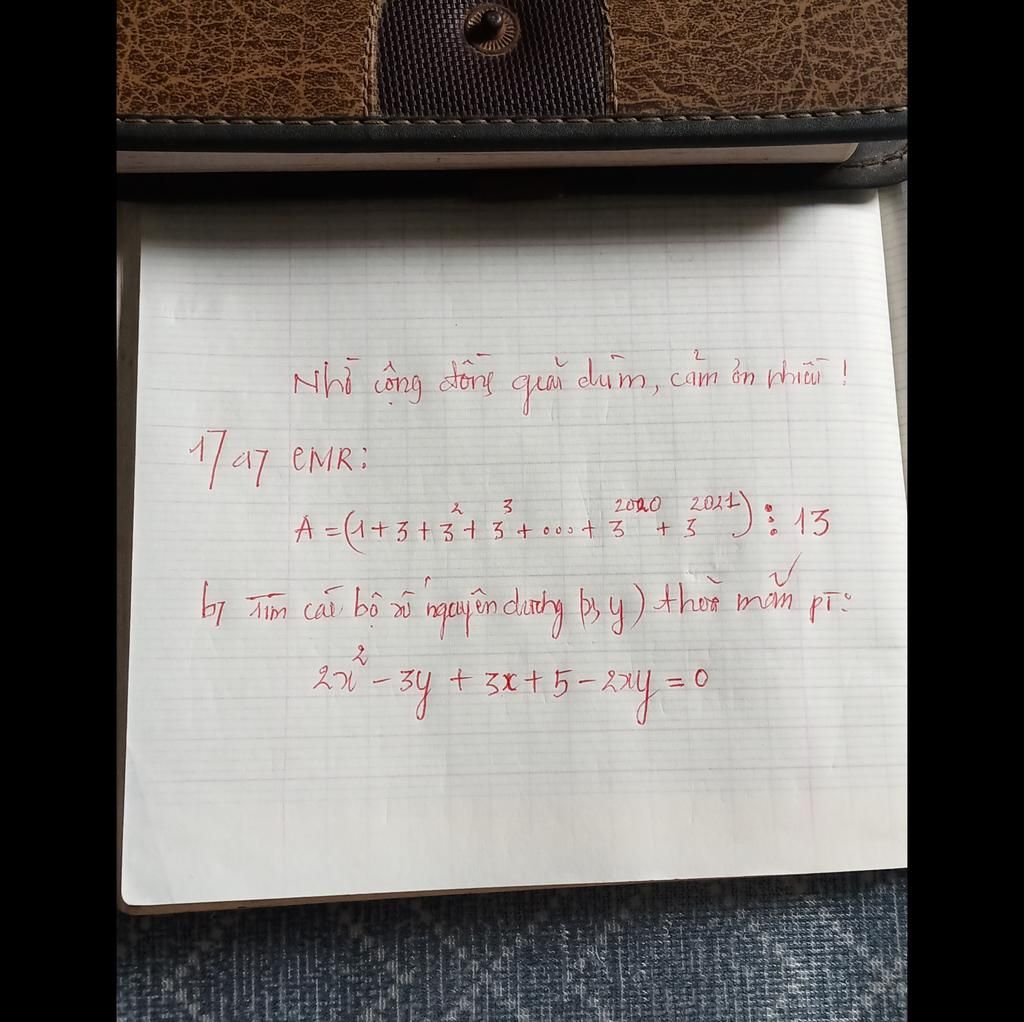 Nhờ cộng đồng giải dùm, cảm ơn nhiều!
1/ a/ CMR:
A = (1 + 3 + 3² + 3³ + ... + 3²⁰²⁰ + 3²⁰²¹) ⋮ 13
b/ Tìm các bộ số nguyên dương (x, y) thoả mãn pt:
2x² - 3y + 3x + 5 - 2xy = 0